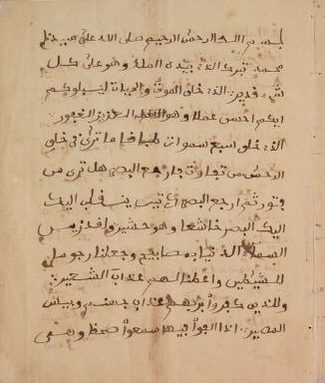 بسم الله الرحمن الرحيم صلى الله على سيدنا
محمد تبرك الذي بيده الملك وهو على كل
شيء قدير الذي خلق الموت والحيات ليبلوكم
ايكم احسن عملا وهو العزيز الغفور
الذي خلق سبع سموات طباقا ما ترى في خلق
الرحمن من تفاوت فارجع البصر هل ترى من
ثم ارجع البصر ينقلب اليك
اليك البصر خاشعا وهو حسير
السماء الدنيا بمصابيح وجعلنا
للشيطين لهم عذاب السعير
وللذين كفروا بربهم عذاب جهنم وبيس
المصير اذا القوا فيها سمعوا